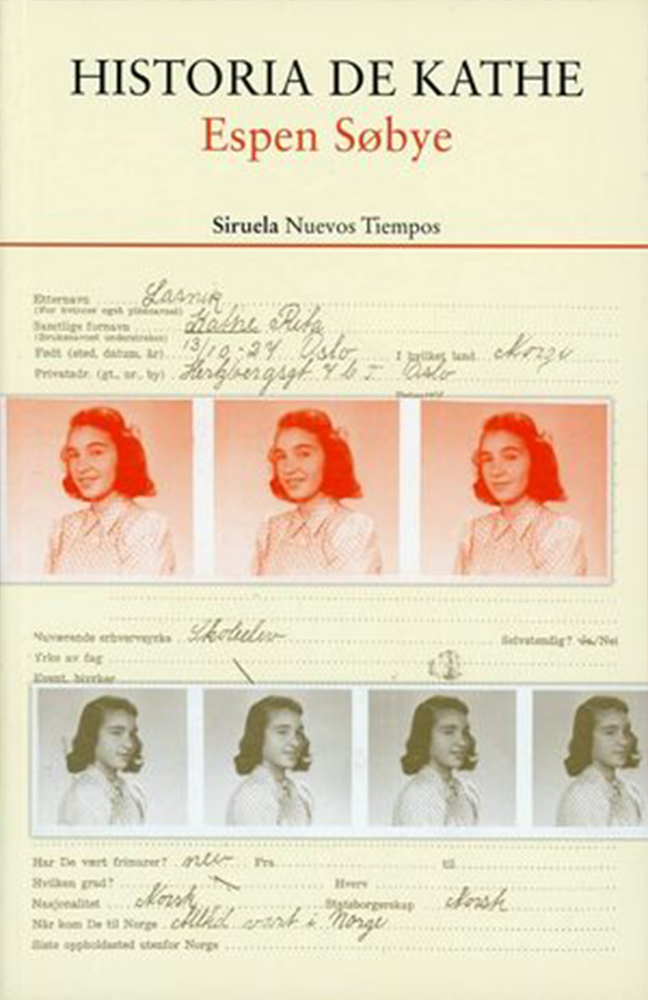 HISTORIA DE KATHE
Espen Søbye
Siruela Nuevos Tiempos
Etternavn Lasnik
(For kvinner også pikenavnet)
Samtlige fornavn Kathe Rita
(Bruksnavnet understrekes)
Født (sted, datum, år) 13/10-27 Oslo I hvilket land Norge
Privatadr. (gt., nr., by) Hertzbergsgt 7 b Oslo
Nuværende erhvervsyrke Skoleelev Selvstendig? Ja/Nei
Yrke av fag
Event. biyrker
Har De vært frimurer? nei Fra til
Hvilken grad? Hvers
Nasjonalitet Norsk Statsborgerskap Norsk
Når kom De til Norge Alltid vært i Norge
Siste oppholdssted utenfor Norge